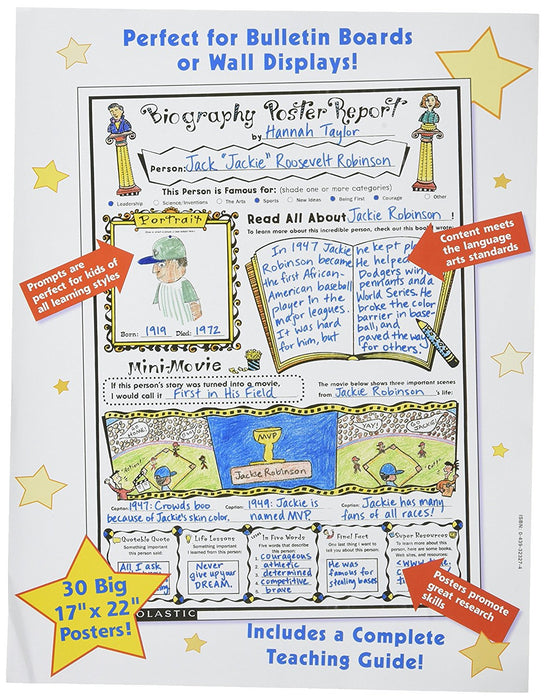 Perfect for Bulletin Boards
or Wall Displays!
Biography Poster Report
by Hannah Taylor
Person: Jack "Jackie" Roosevelt Robinson
This Person is Famous for: (shade one or more categories)
Leadership Science/Inventions The Arts Sports New Ideas Being First Courage Other
Portrait
Born: 1919 Died: 1972
Read All About Jackie Robinson !
To learn more about this incredible person, check out this book I wrote:
In 1947 Jackie
Robinson became
the first African-
American baseball
player in the
major leagues.
It was hard
for him, but
he kept
He helped
Dodgers win
pennants and a
World Series. He
broke the color
barrier in base-
ball, and
paved the way
for others.
Prompts are
perfect for kids of
all learning styles
Content meets
the language
arts standards
Mini-Movie
If this person's story was turned into a movie,
I would call it First in His Field
The movie below shows three important scenes
from Jackie Robinson 's life:
MVP
Jackie Robinson
YAY!
Caption: 1947: Crowds boo
because of Jackie's skin color.
Caption: 1949: Jackie is
named MVP.
Caption: Jackie has many
fans of all races!
Quotable Quote
Something important
this person said:
All I ask
Life Lessons
Something important
I learned from this person:
Never
give up your
DREAM.
In Five Words
Five words that describe
this person:
1. courageous
2. athletic
3. determined
4. competitive
5. brave
Final Fact
One last thing I want to
tell you about this person:
He was
famous for
stealing bases
Super Resources
To learn more about this
person, here are some books,
Web sites, and resources:
30 Big
17" x 22"
Posters!
OLASTIC
Posters promote
great research
skills
Includes a Complete
Teaching Guide!
ISBN: 0-439-32327-4